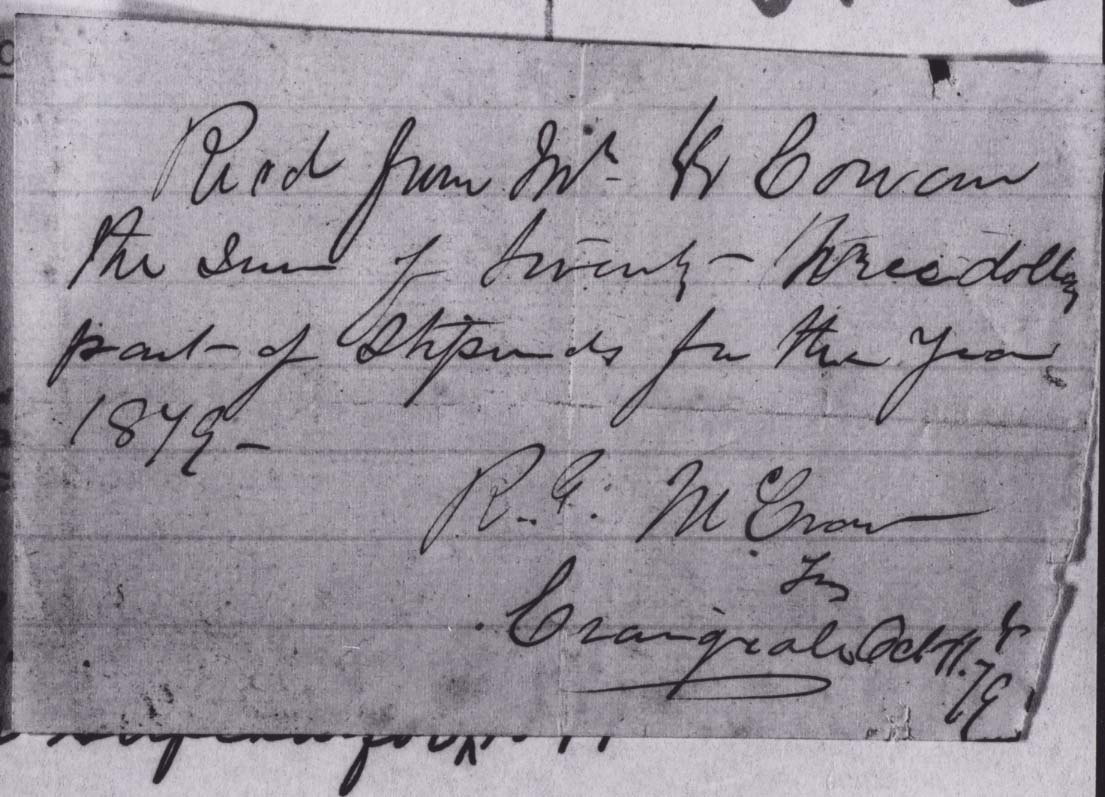 Recd from Mr. W Cowan
the sum of twenty-three dollars
part of Stipends for the year
1879-
R. G. McGraw
Oct 11. 79